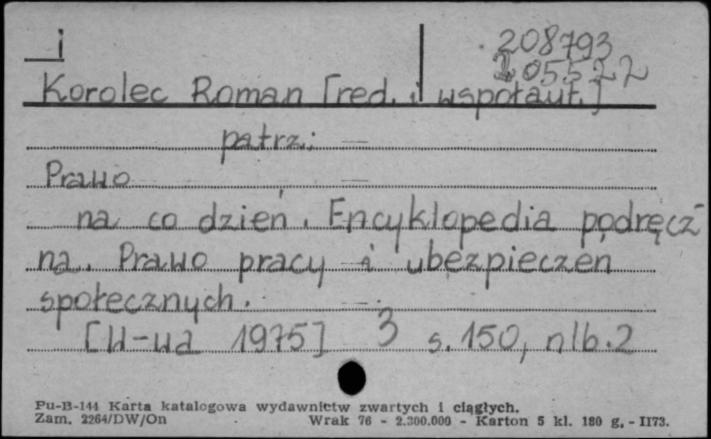 i
208793
205522
Korolec Roman [red. i współaut.]
patrz:
Prawo
na co dzień. Encyklopedia podręcz-
na. Prawo pracy i ubezpieczeń
społecznych.
[W-wa 1975] 3 s. 150, nlb. 2
Pu-B-144 Karta katalogowa wydawnictw zwartych i ciągłych.
Zam. 2264/DW/On Wrak 76 - 2.300.000 - Karton 5 kl. 180 g. - II73.